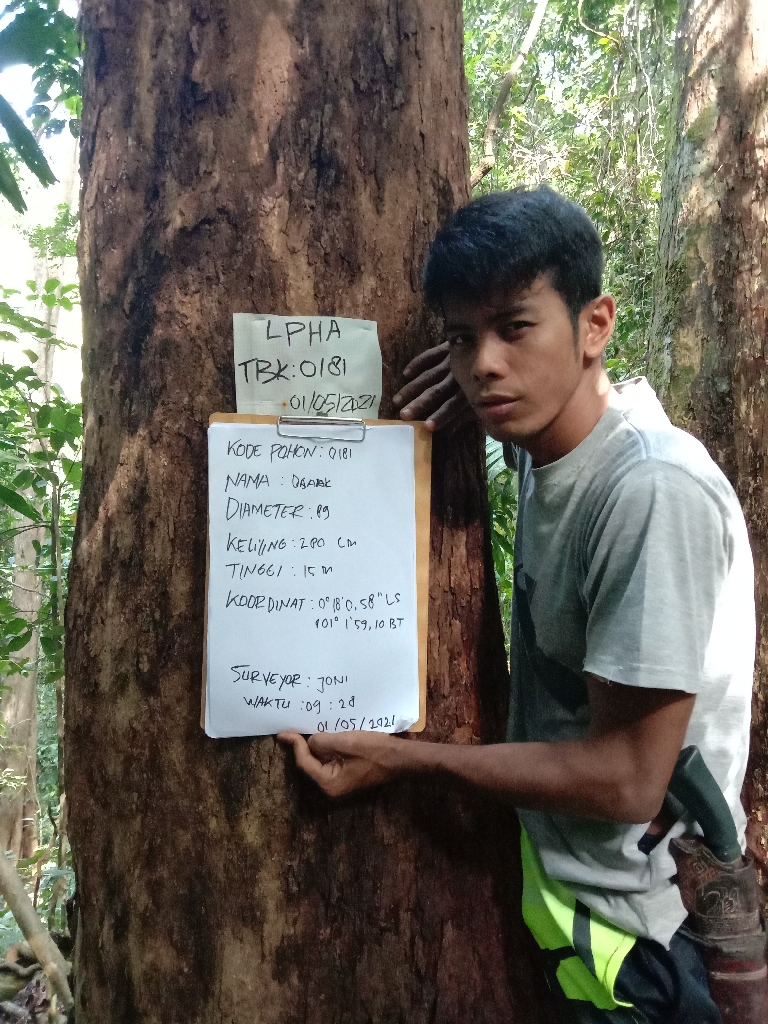 LPHA
TBK:0181
01/05/2021
KODE POHON : 0181
NAMA :
DIAMETER : 89
KELILING : 280 CM
TINGGI : 15 m
KOORDINAT : 0° 18' 0,58" LS
101° 1' 59,10 BT
SURVEYOR : JONI
WAKTU : 09 : 28
01/05/2021